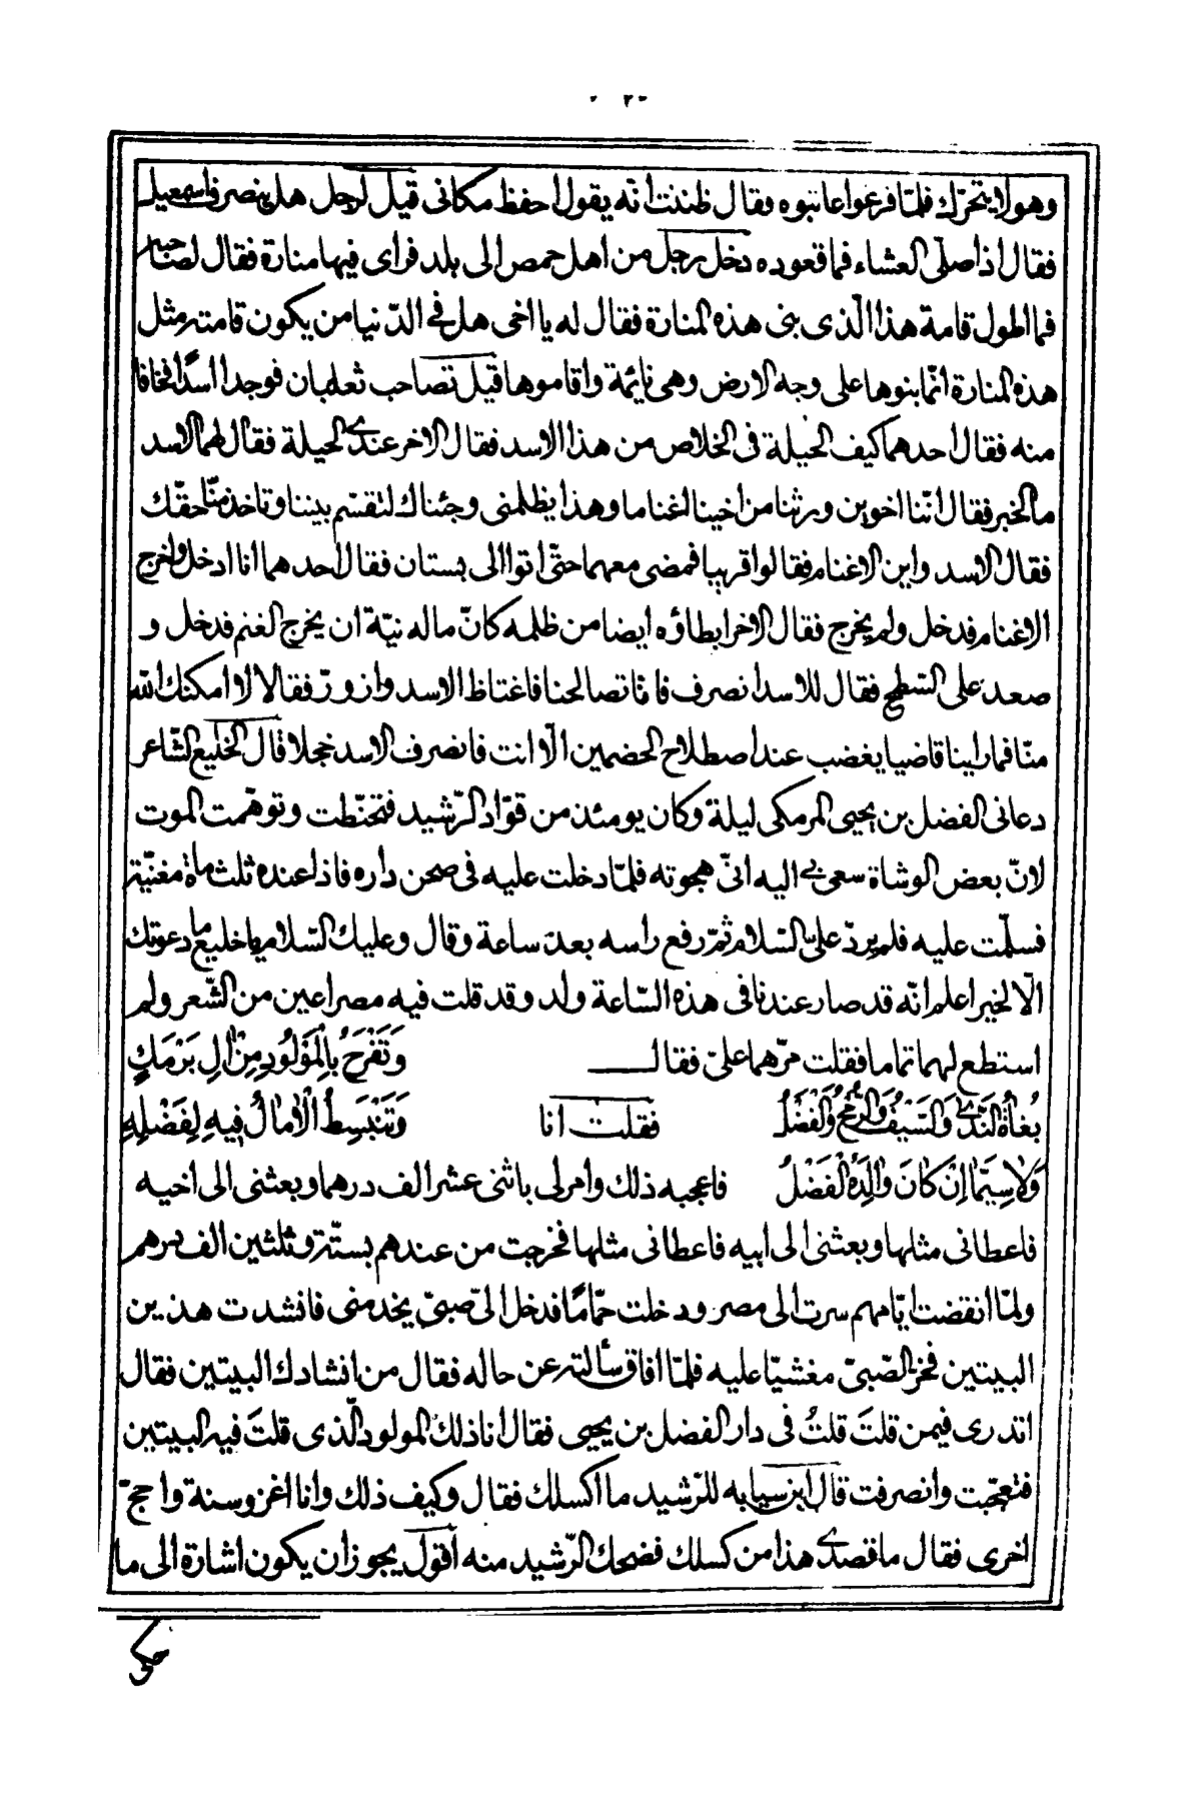 وهو لا يتحرّك فلمّا فرغوا عاتبوه فقال ظننت انّه يقول احفظ مكانى قيل لرجل هل ينصرف اسمعيل
فقال اذا صلّى العشاء فما قعوده دخل رجل من اهل حمص الى بلد فراى فيها منارة فقال لصاحبه
فما اطول قامة هذا الّذى بنى هذه المنارة فقال له يا اخى هل فى الدّنيا من يكون قامته مثل
هذه المنارة انّما بنوها على وجه الارض وهى نائمة واقاموها قيل تصاحب ثعلبان فوجدا اسدًا فخافا
منه فقال احدهما كيف الحيلة فى الخلاص من هذا الاسد فقال الاخر عندى الحيلة فقال لهما الاسد
ما الخبر فقال انّنا اخوين ورثنا من اخينا لغناما وهذا يظلمنى وجئناك لتقسّم بيننا وتاخذ منّا حقّك
فقال الاسد واين الاغنام فقالوا قريبا فمضى معهما حتّى اتوا الى بستان فقال احدهما انا ادخل واخرج
الاغنام فدخل ولم يخرج فقال الاخر ابطاؤه ايضا من ظلمه كانّ ماله نيّة ان يخرج الغنم فدخل و
صعد على السّطح فقال للاسد انصرف فانّا تصالحنا فاغتاظ الاسد وازورّ فقالا لا امكنك الله
منّا فما راينا قاضيا يغضب عند اصطلاح الخصمين الّا انت فانصرف الاسد خجلا قال الخليع الشّاعر
دعانى الفضل بن يحيى البرمكى ليلة وكان يومئذ من قوّاد الرّشيد فتحنّطت وتوهّمت الموت
لانّ بعض الوشاة سعى بى اليه انّى هجوته فلمّا دخلت عليه فى صحن داره فاذا عنده ثلث مائة مغنّية
فسلّمت عليه فلم يردّ علىّ السّلام ثمّ رفع راسه بعد ساعة وقال وعليك السّلام يا خليع ما دعوتك
الّا لخير اعلم انّه قد صار عندنا فى هذه السّاعة ولد وقد قلت فيه مصراعين من الشّعر ولم
استطع لهما تماما فقلت مرّهما علىّ فقال وَتَفْرَحُ بِالْمَوْلُودِ مِنْ اٰلِ بَرْمَكٍ
بُغاةُ النَّدٰى وَالسَّيْفُ وَالرُّمْحُ وَالْفَضْلُ فقلت انا وَتَنْبَسِطُ الْاٰمالُ فِيهِ لِفَضْلِهِ
وَلاٰسِيَّمٰا اِنْ كٰانَ وٰالِدُهُ الْفَضْلُ فاعجبه ذلك وامر لى باثنى عشر الف درهم وبعثنى الى اخيه
فاعطانى مثلها وبعثنى الى ابيه فاعطانى مثلها فخرجت من عندهم بستّة وثلثين الف درهم
ولمّا انقضت ايّامهم سرت الى مصر ودخلت حمّامًا فدخل الىّ صبىّ يخدمنى فانشدت هذين
البيتين فخرّ الصّبىّ مغشيّا عليه فلمّا افاق سألته عن حاله فقال من انشادك البيتين فقال
اتدرى فيمن قلتَ قلتُ فى دار الفضل بن يحيى فقال انا ذلك المولود الّذى قلتَ فيه البيتين
فتعجّبت وانصرفت قال ابن سيابه للرّشيد ما اكسلك فقال وكيف ذلك وانا اغزو سنة واحجّ
اخرى فقال ما قصدى هذا من كسلك فضحك الرّشيد منه اقول يجوز ان يكون اشارة الى ما
حكى